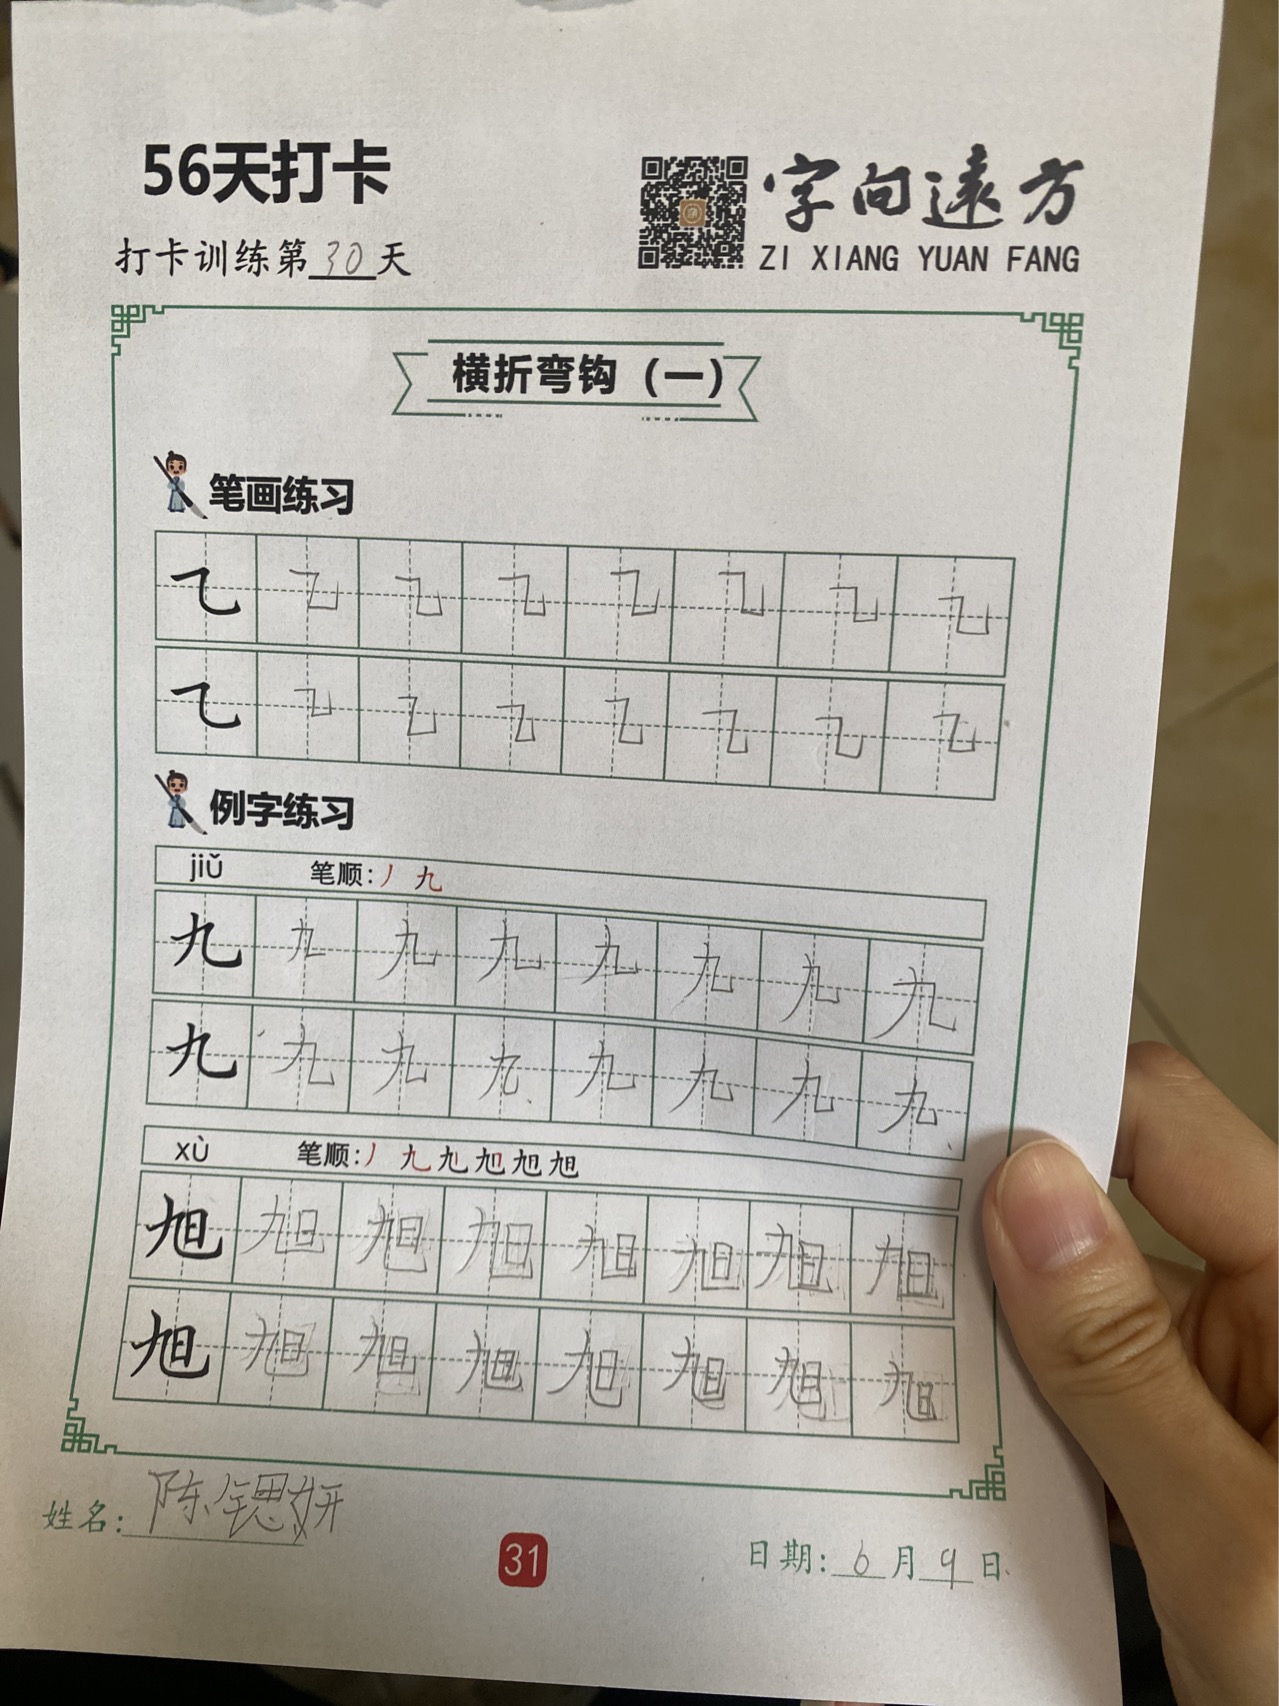 56天打卡
字向遠方
ZI XIANG YUAN FANG
打卡训练第30天
横折弯钩（一）
笔画练习
乙 乙 乙 乙 乙 乙 乙 乙
乙 乙 乙 乙 乙 乙 乙 乙
例字练习
jiǔ 笔顺：丿 九
九 九 九 九 九 九 九 九
九 九 九 九 九 九 九 九
xù 笔顺：
旭 旭 旭 旭 旭 旭 旭 旭
旭 旭 旭 旭 旭 旭 旭 旭
姓名：陈锶妍
31
日期：6月9日